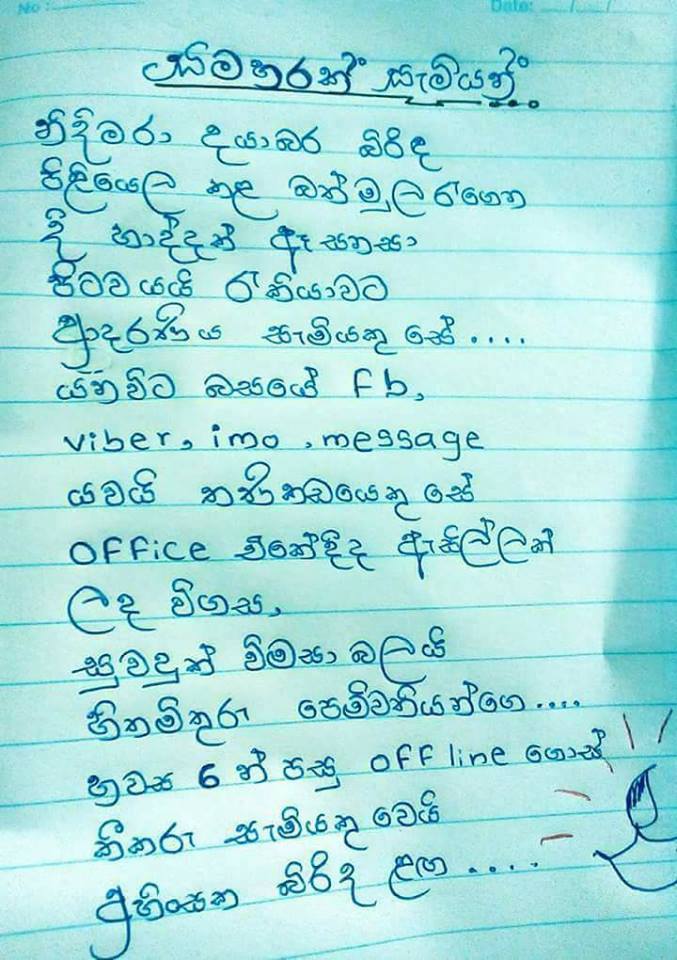 No :
Date: / /
සමහරක් සැමියන්...
නිදිමරා දයාබර බිරිඳ
පිළියෙල කළ බත්මුල රැගෙන
දී හාද්දක් ඈ සනසා
පිටවයයි රැකියාවට
ආදරණීය සැමියකු සේ....
යනවිට බසයේ fb,
viber, imo, message
යවයි තණිකඩයෙකු සේ
office එකේදීද ඇසිල්ලක්
ලද විගස,
සුවදුක් විමසා බලයි
හිතමිතුරු පෙම්වතියන්ගෙ....
හවස 6 න් පසු off line ගොස්
කීකරු සැමියකු වෙයි
අහිංසක බිරිඳ ළඟ ....